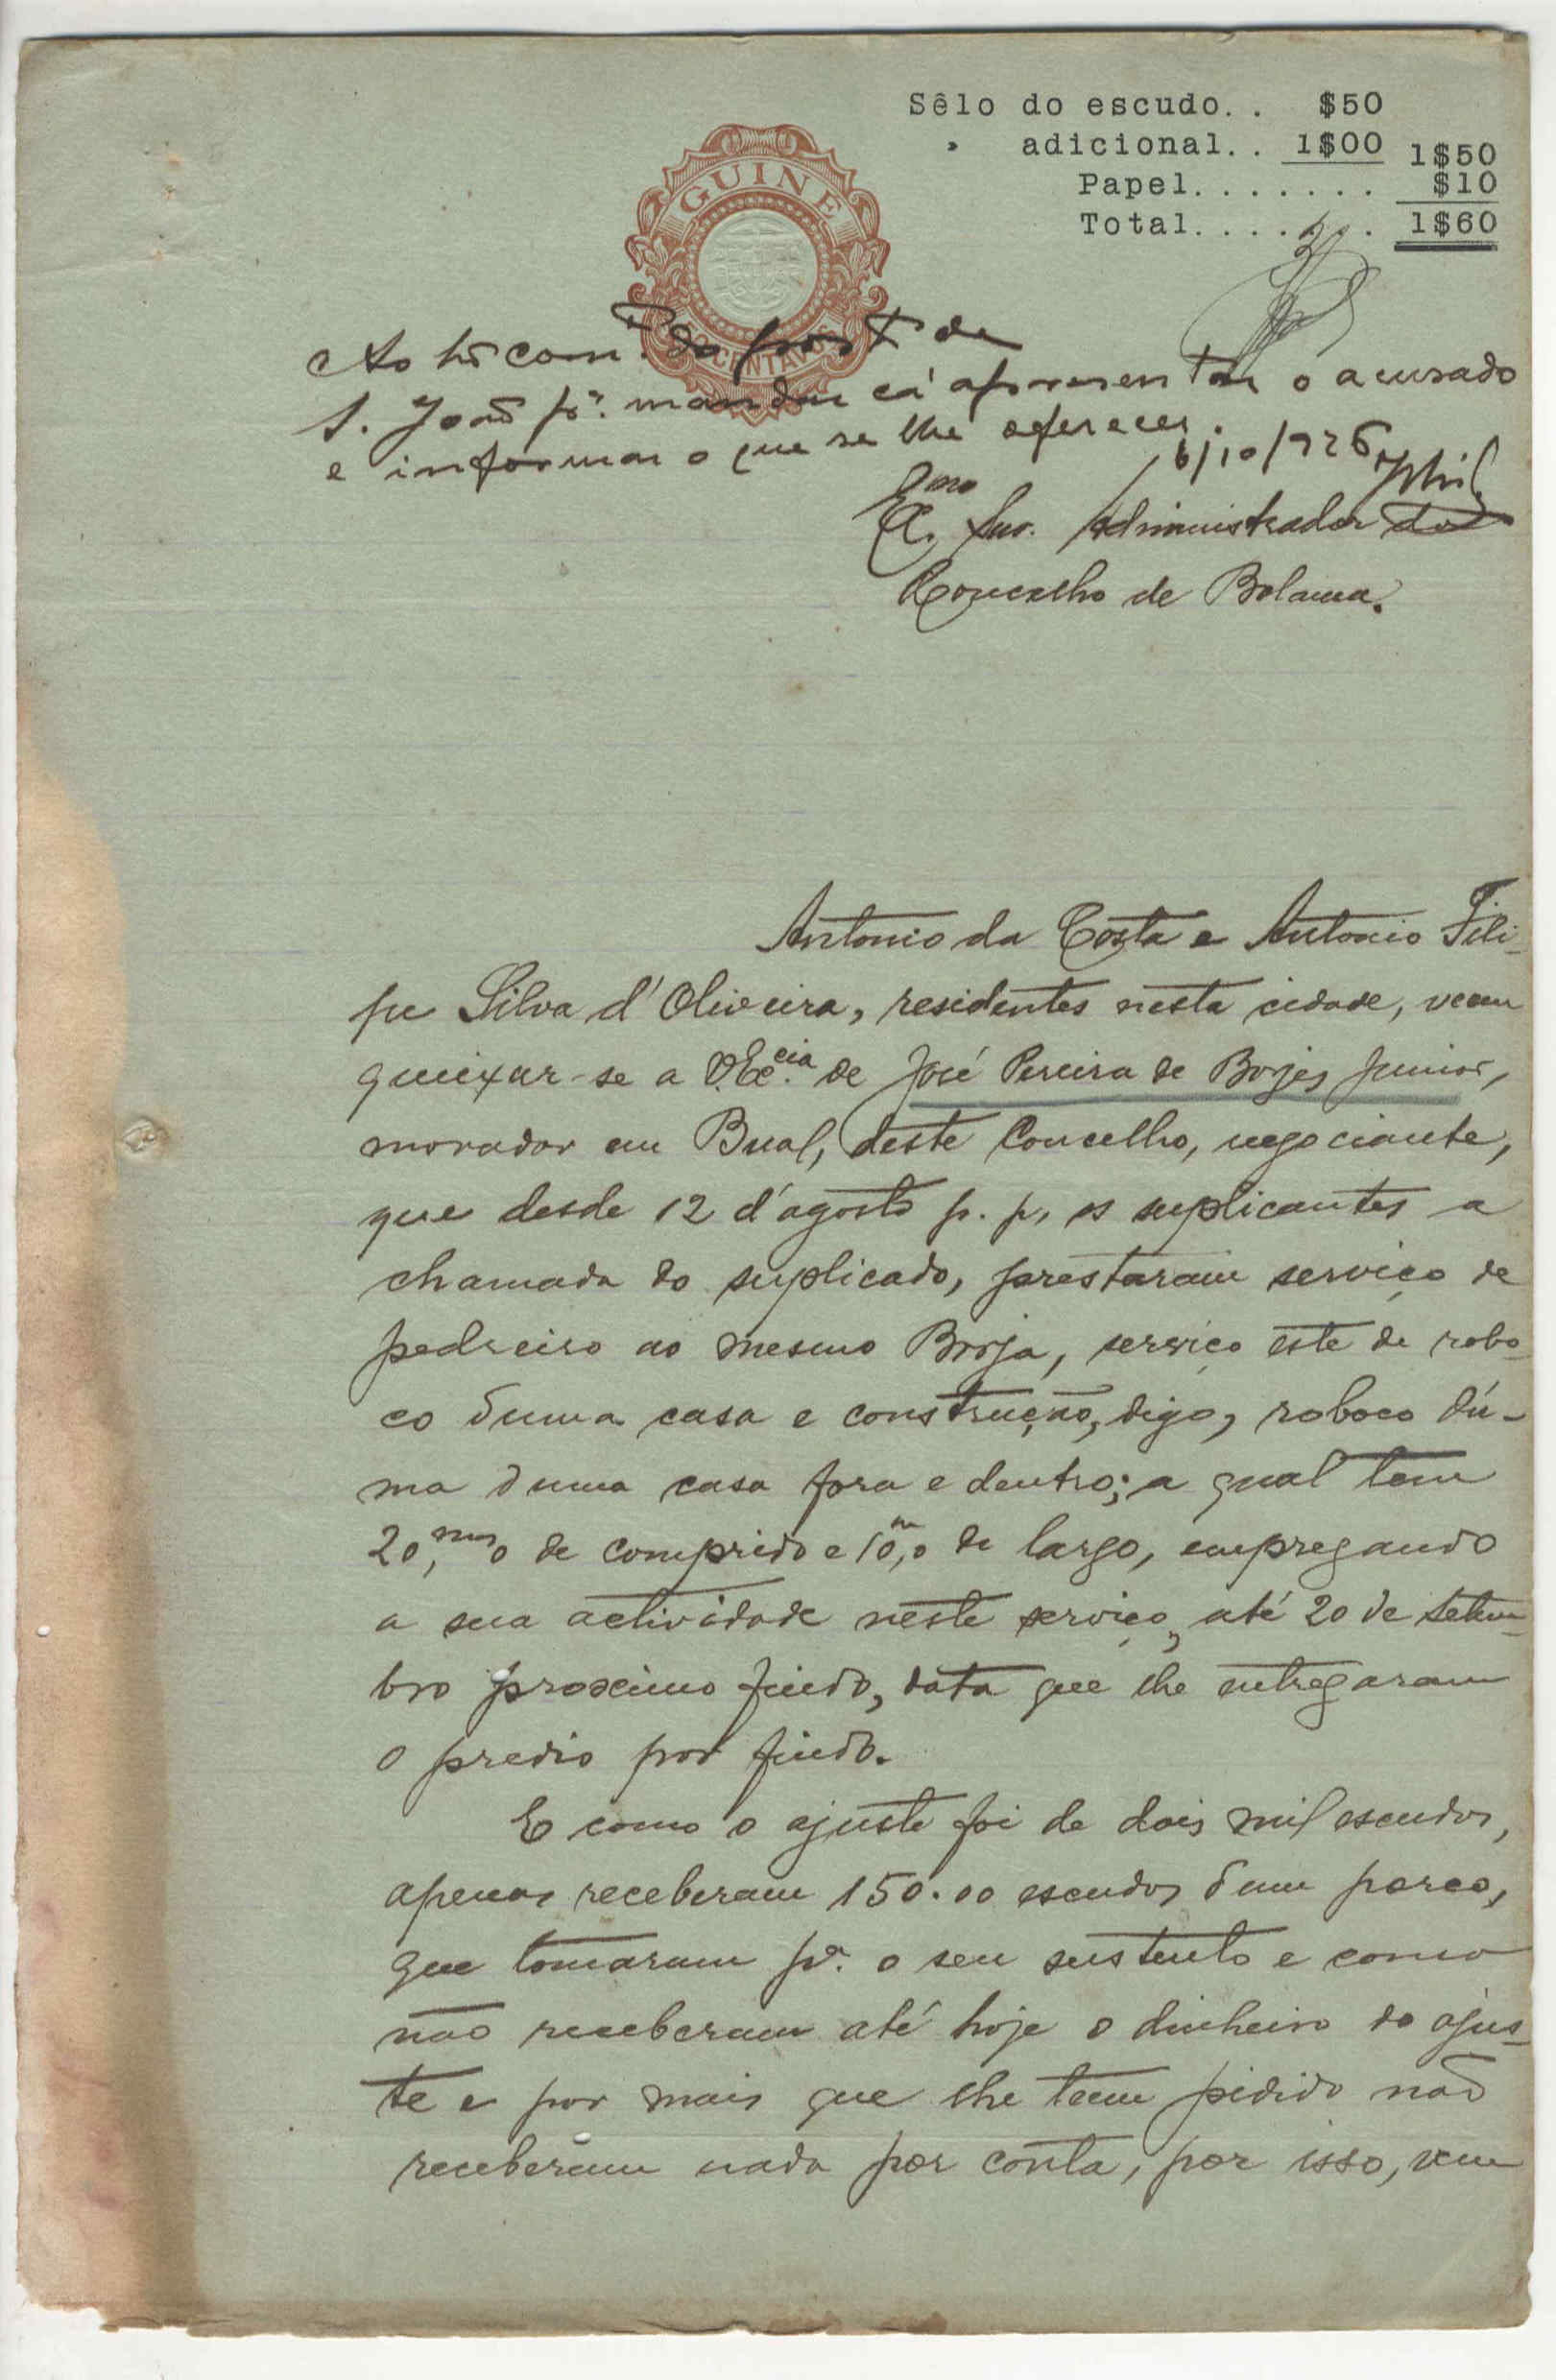 Sêlo do escudo.. $50
" adicional.. 1$00 1$50
Papel....... $10
Total....... 1$60
GUINE
CENTAVOS
Ao com. do post de
S. João pª. mandar cá apresentar o acusado
e informar o que se lhe oferecer.
6/10/926
Exmo Snr. Administrador do
Concelho de Bolama.
Antonio da Costa e Antonio Fili-
pe Silva d'Oliveira, residentes nesta cidade, veem
queixar-se a V. Excia. de José Pereira de Borjes Junior,
morador em Bual, deste Concelho, negociante,
que desde 12 d'agosto p. p, os suplicantes a
chamada do suplicado, prestaram serviço de
pedreiro ao mesmo Borja, serviço este de robo-
co duma casa e construção, digo, roboco dú-
ma duma casa fora e dentro; a qual tem
20,ms0 de comprido e 10,m0 de largo, empregando
a sua actividade neste serviço, até 20 de Setem-
bro proximo findo, data que lhe entregaram
o predio por findo.
E como o ajuste foi de dois mil escudos,
apenas receberam 150.00 escudos dum porco,
que tomaram pª. o seu sustento e como
não receberam até hoje o dinheiro do ajus-
te e por mais que lhe teem pedido não
receberam nada por conta, por isso, vem